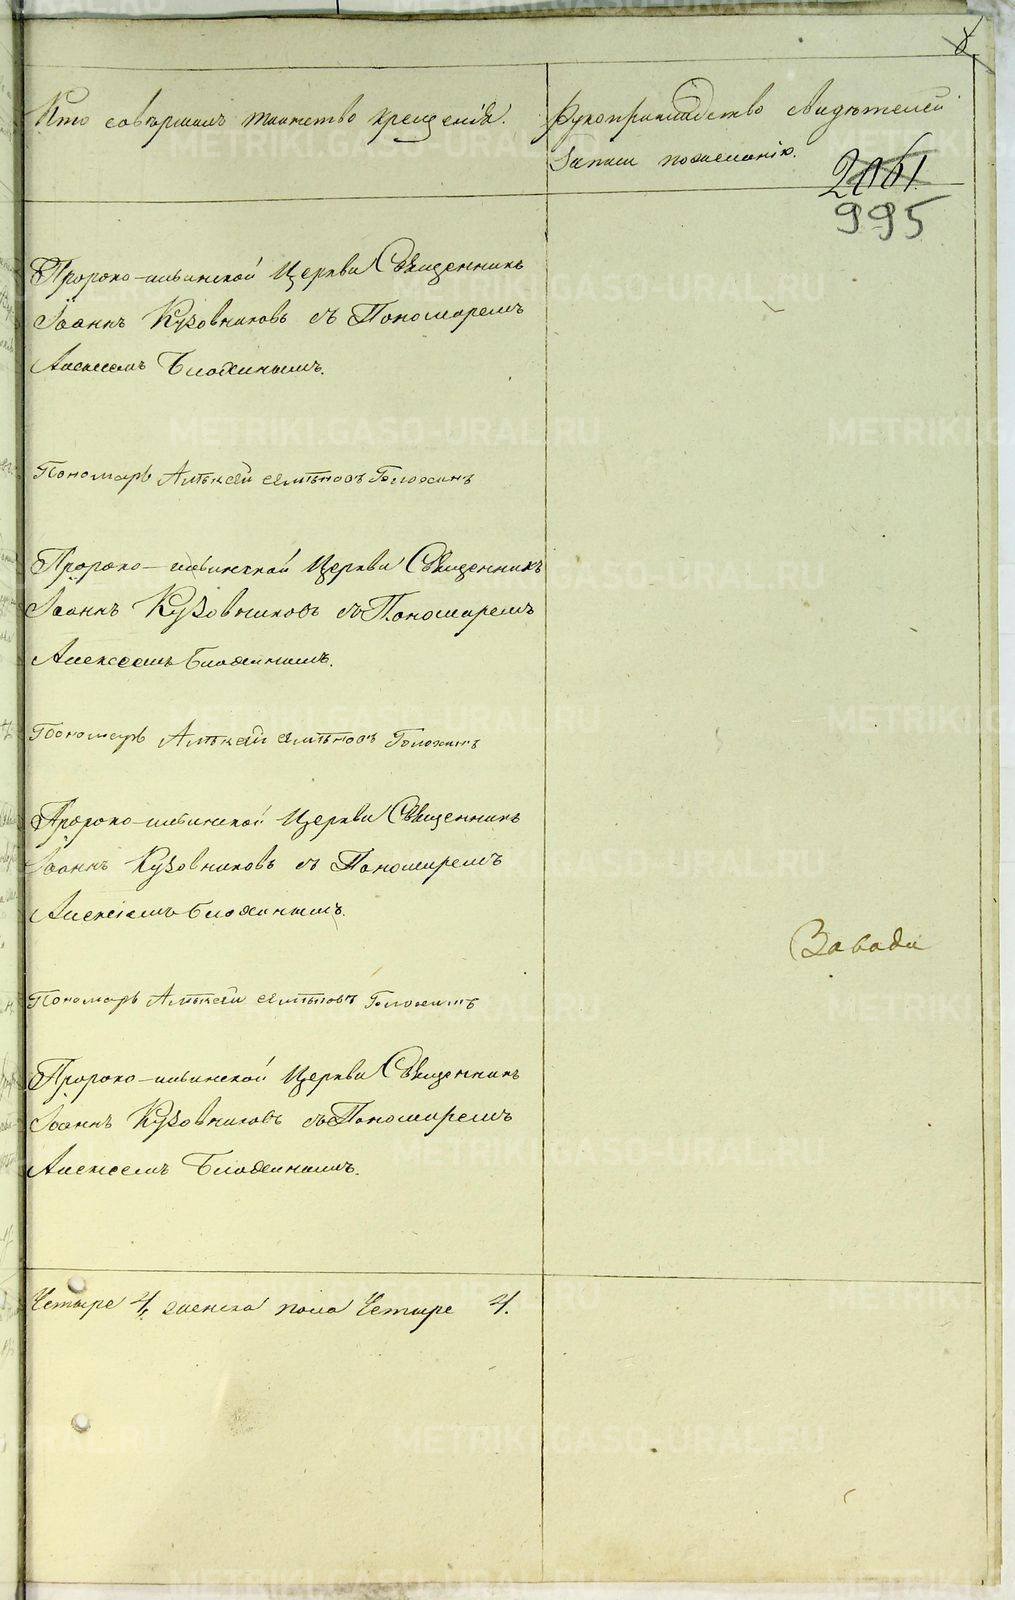 8
Кто совершалъ таинство крещенія.
Рукоприкладство свидѣтелей
записи по желанію.
2061
995
Пророко-ильинской Церкви Священникъ
Іоаннъ Кузовниковъ съ Пономаремъ
Алексеемъ Блохинымъ.
Пономарь Алѣксѣй
Пророко-ильинской Церкви Священникъ
Іоаннъ Кузовниковъ съ Пономаремъ
Алексеемъ Блохинымъ.
Пономарь Алѣксѣй
Пророко-ильинской Церкви Священникъ
Іоаннъ Кузовниковъ съ Пономаремъ
Алексіемъ Блохинымъ.
Пономарь Алѣксѣй
Пророко-ильинской Церкви Священникъ
Іоаннъ Кузовниковъ съ Пономаремъ
Алексеемъ Блохинымъ.
Четыре 4, женска пола Четыре 4.
METRIKI.GASO-URAL.RU